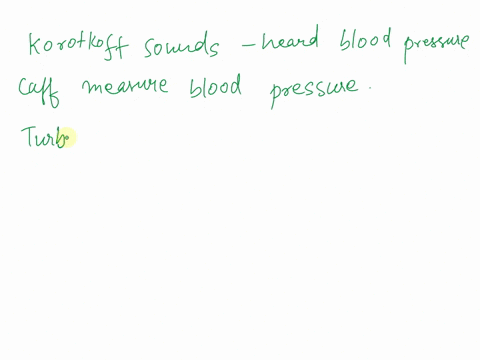 Korotkoff sounds - heard blood pressure
Caff measure blood pressure.
Turb